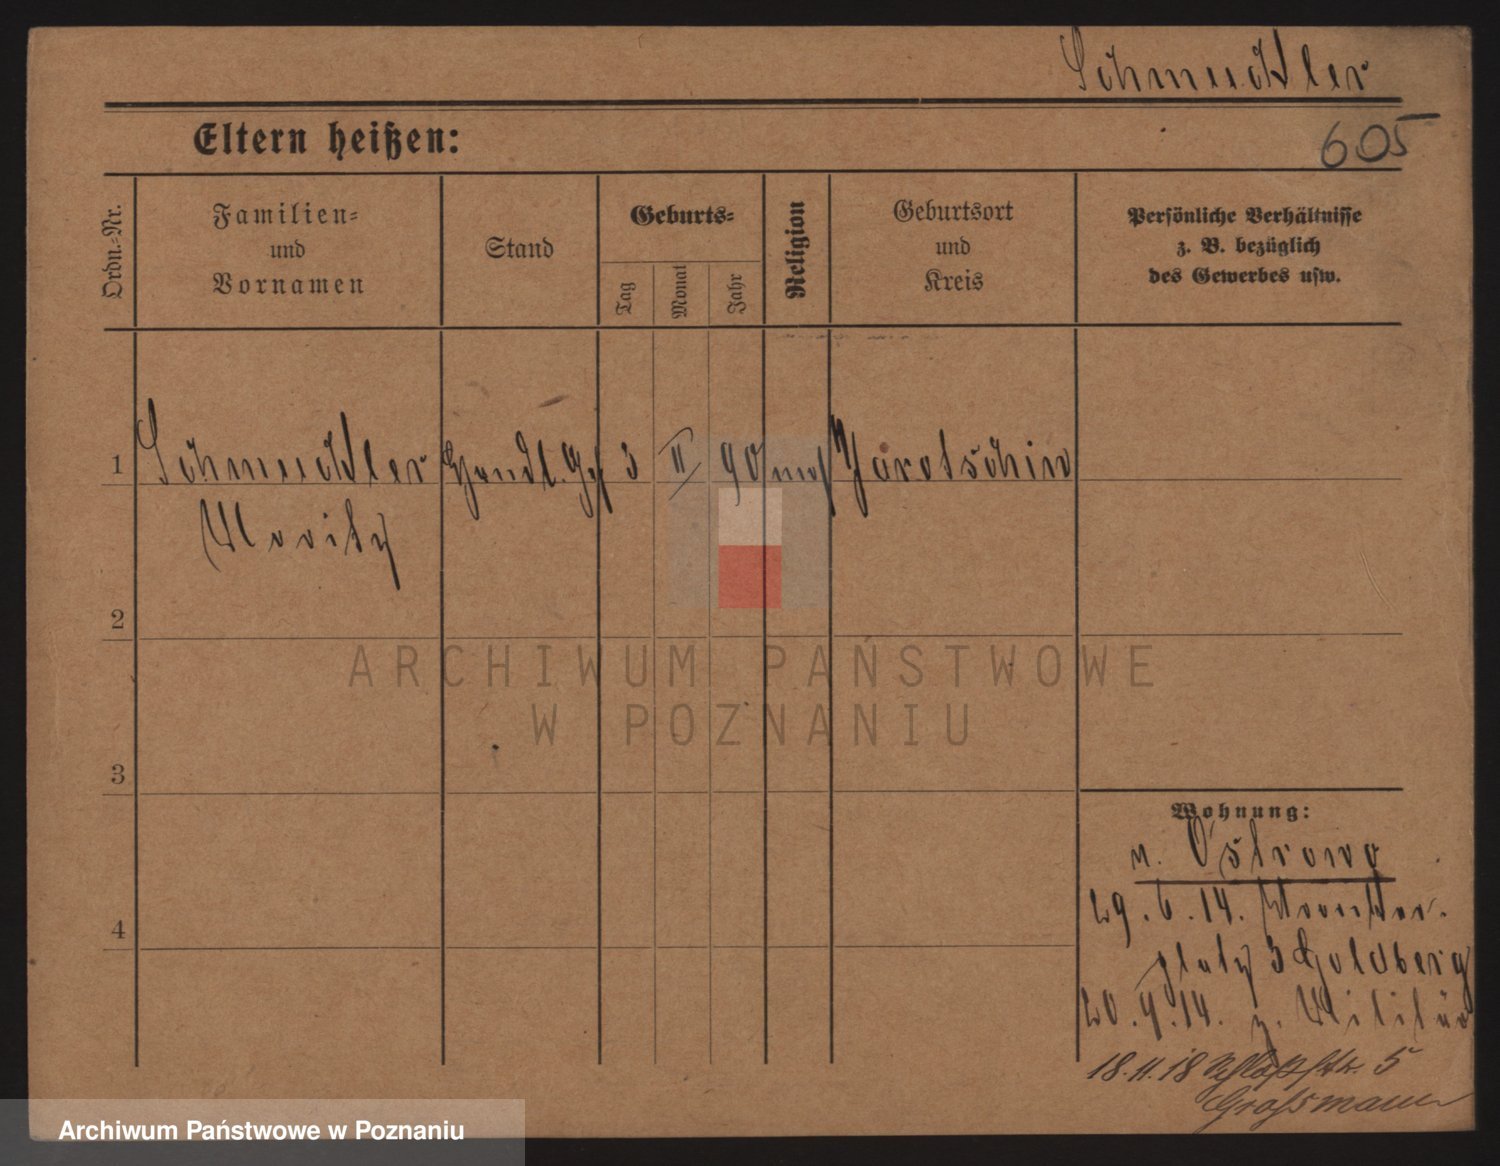 Schmuckler
Eltern heißen:
605
Ordn.-Nr.
Familien-
und
Vornamen
Stand
Geburts-
Tag
Monat
Jahr
Religion
Geburtsort
und
Kreis
Persönliche Verhältnisse
z. B. bezüglich
des Gewerbes usw.
1
Schmuckler Handl. Gh 3 II 90 mos Jarotschin
Moritz
2
ARCHIWUM PAŃSTWOWE
W POZNANIU
3
Wohnung:
n. Ostrowo
29.6.14.
4
platz 3 Goldberg
20. 14. z. Militär
18.11.18 Schloßstr. 5
Grossmann
Archiwum Państwowe w Poznaniu